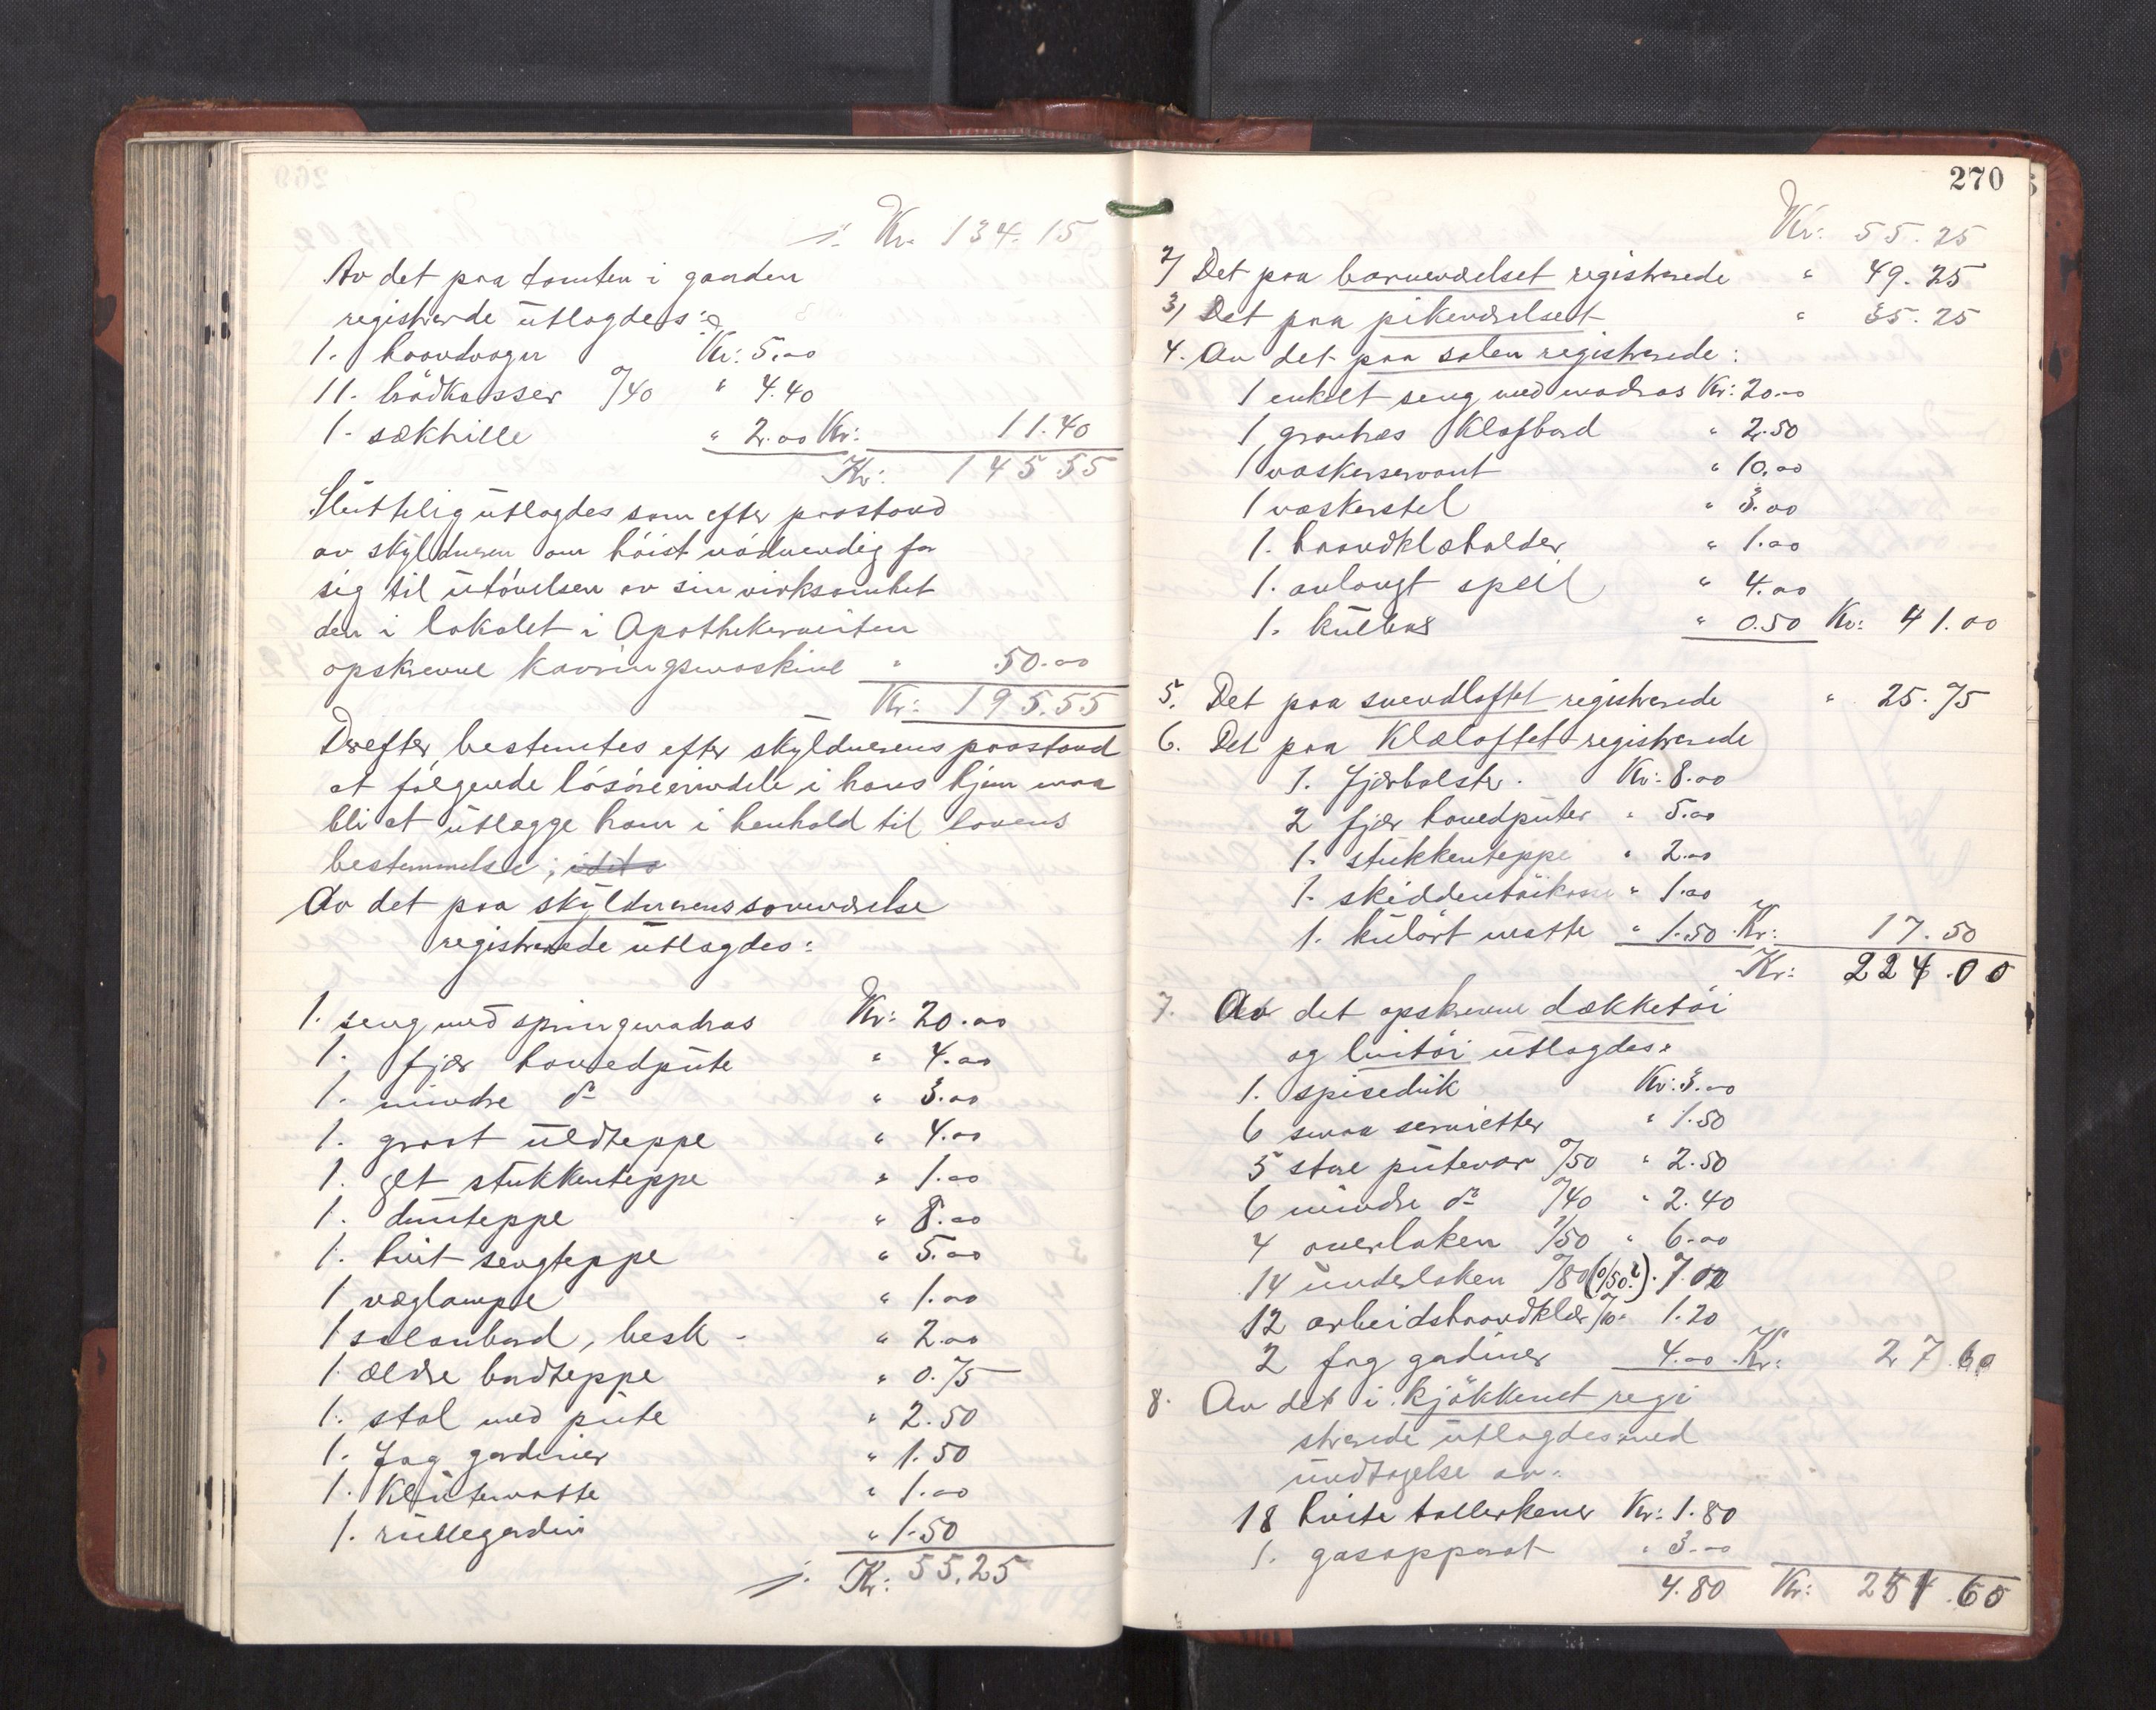 ÷ Kr. 134.15
Av det paa tomten i gaarden
registrerede utlagdes:
1. haandvogn Kr: 5.00
11. brödkasser º/40 " 4.40
1. sækhille " 2.00 Kr: 11.40
Kr: 145.55
Sluttelig utlagdes som efter paastand
av skyldneren om höist nödvendig for
sig til utövelsen av sin virksomhet
den i lokalet i Apothekerveiten
opskrevne kavringsmaskine " 50.00
Kr: 195.55
Derefter bestemtes efter skyldnerens paastand
at følgende lösöreeiendele i hans hjem maa
bli at utlægge ham i henhold til lovens
bestemmelse;
Av det paa skyldnerens soveværelse
registrerede utlagdes:
1. seng med springmadras Kr: 20.00
1. fjær hovedpute " 4.00
1. mindre do " 3.00
1. graat uldteppe " 4.00
1. get stukkenteppe " 1.00
1. dunteppe " 8.00
1. hvit sengteppe " 5.00
1 væglampe " 1.00
1 salonbord, besk - " 2.00
1. ældre bordteppe " 0.75
1. stol med pute " 2.50
1. Fag gardiner " 1.50
1. Klutematte " 1.00
1. rullegardin " 1.50
÷ Kr: 55.25
270
Kr: 55.25
2/ Det paa barneværelset registrerede " 49.25
3/ Det paa pikeværelset " 35.25
4. Av det paa salen registrerede:
1 enkelt seng med madras Kr: 20.00
1 grantræs Klafbord " 2.50
1 vaskeservant " 10.00
1 vaskerstel " 3.00
1. haandklæholder " 1.00
1. avlangt speil " 4.00
1. kulbas " 0.50 Kr: 41.00
5. Det paa svendloftet registrerede " 25.75
6. Det paa Klæloftet registrerede
1. fjærbolster. Kr: 8.00
2 fjær hovedputer " 5.00
1. stukkenteppe " 2.00
1. skiddentöikasse " 1.00
1. kulört matte " 1.50 Kr: 17.50
Kr: 224.00
7. Av det opskrevne dækketöi
og lintöi utlagdes:
1. spiseduk Kr: 3.00
6 smaa servietter " 1.50
5 store putevar º/50 " 2.50
6 mindre do º/40 " 2.40
4 overlaken 1/50 " 6.00
14 underlaken º/80 (º/50?) " 7.00
12 arbeidshaandklær º/10 " 1.20
2 fag gardiner 4.00 Kr: 27.60
8. Av det i kjökkenet regi
strerede utlagdes med
undtagelse av:
18 hvite tallerkener Kr: 1.80
1. gasapparat " 3.00
4.80 Kr: 251.60